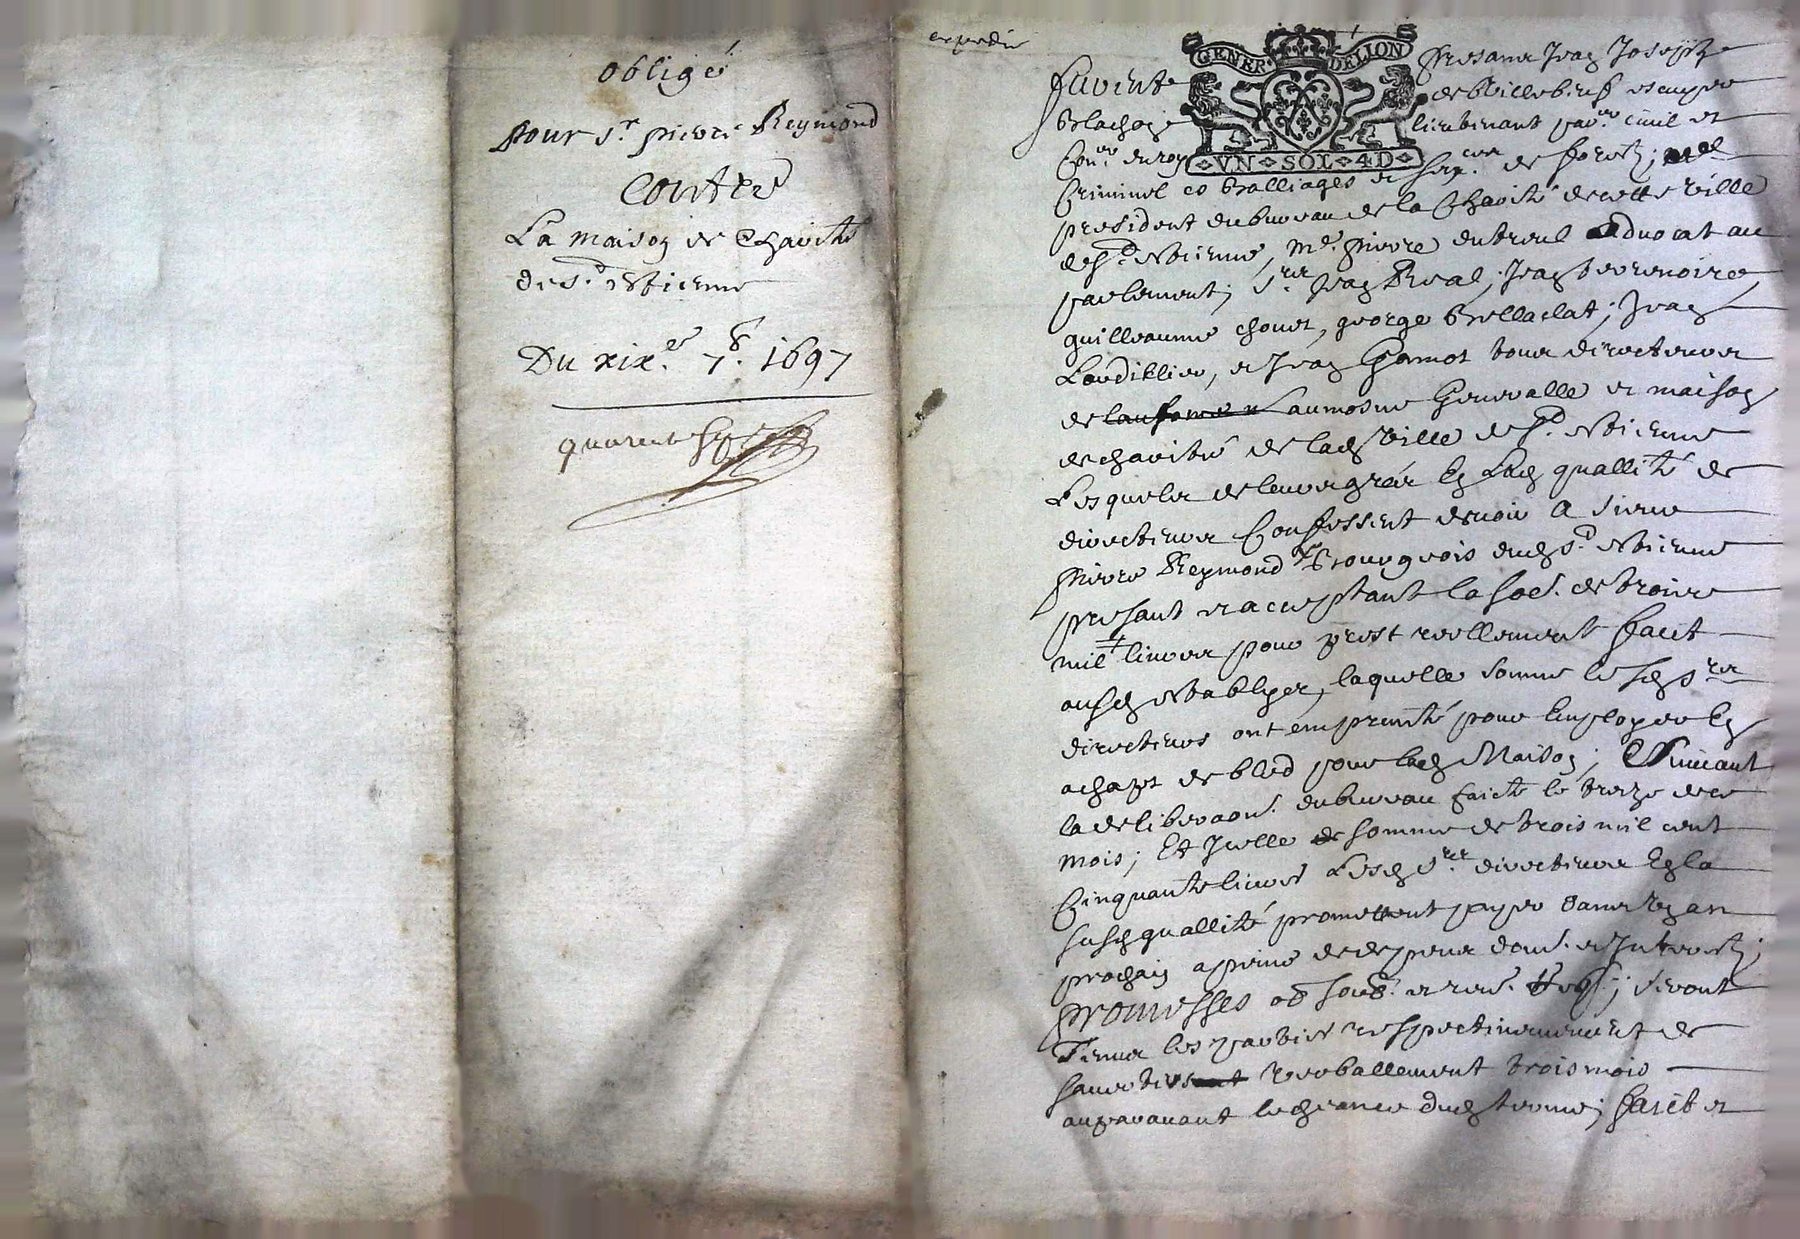 obligé
pour Sr. pierre Reymond
Contre
La maison de Charité
de St. Estienne
Du xixe. 7b. 1697
expedié
GENER. DELION
VN SOL 4D
furent presans Jean Joseph
Blachon de Villebeuf escuyer
Coner. du roy lieutenant civil et
Criminel es balliages et de forest;
president du bureau de la Charité de cette ville
de St. Estienne, Me. pierre dutreul advocat au
parlement; Srs. Jean Real, Jean
guilleaume chover, george Jean
et Jean tous directeurs
de l'aumosne Generalle et maison
de charité de lad. ville de St. Estienne
Lesquels de leurs grés En Lad. quallité de
directeurs Confessent devoir A sieur
pierre Reymond Bourgeois dud. St. Estienne
presant et acceptant la so. de trois
mil livres pour prest reellement faict
laquelle somme lesd. Srs.
directeurs ont emprunté pour Employer En
achapt de bled pour lad. Maison; Suivant
la deliberaon. du bureau faicte le treize de ce
mois; Et Jcelle somme de trois mil cent
Cinquante livres Lesd. Srs. directeurs En la
susd. quallité promettent payer dans Un an
prochain a peine de
promesses
Tenus les parties respectivement de
s'avertir verballement trois mois
auparavant l'escheance dud. terme; faict et